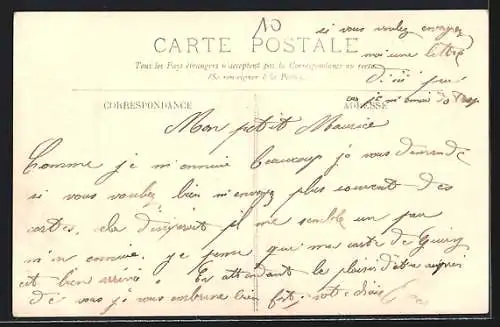 10
si vous voulez envoyez
moi une lettre
d'ici peu
car je m'ennui trop
CARTE POSTALE
Tous les Pays étrangers n'acceptent pas la Correspondance au recto
(Se renseigner à la Poste)
CORRESPONDANCE
ADRESSE
Mon petit Maurice
Comme je m'ennuie beaucoup je vous demande
si vous voulez bien m'envoyez plus souvent des
cartes, il me semble un peu
je pense que ma carte de
est bien arrivée. En attendant le plaisir d'être auprès
de vous je vous embrasse bien fort, votre